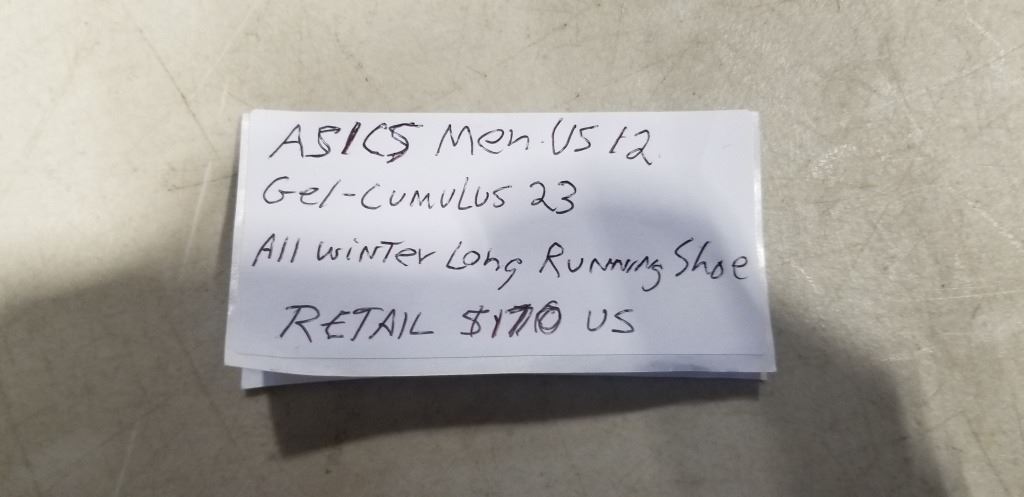 ASICS Men. US 12
Gel-Cumulus 23
All winter Long Running Shoe
RETAIL $170 US